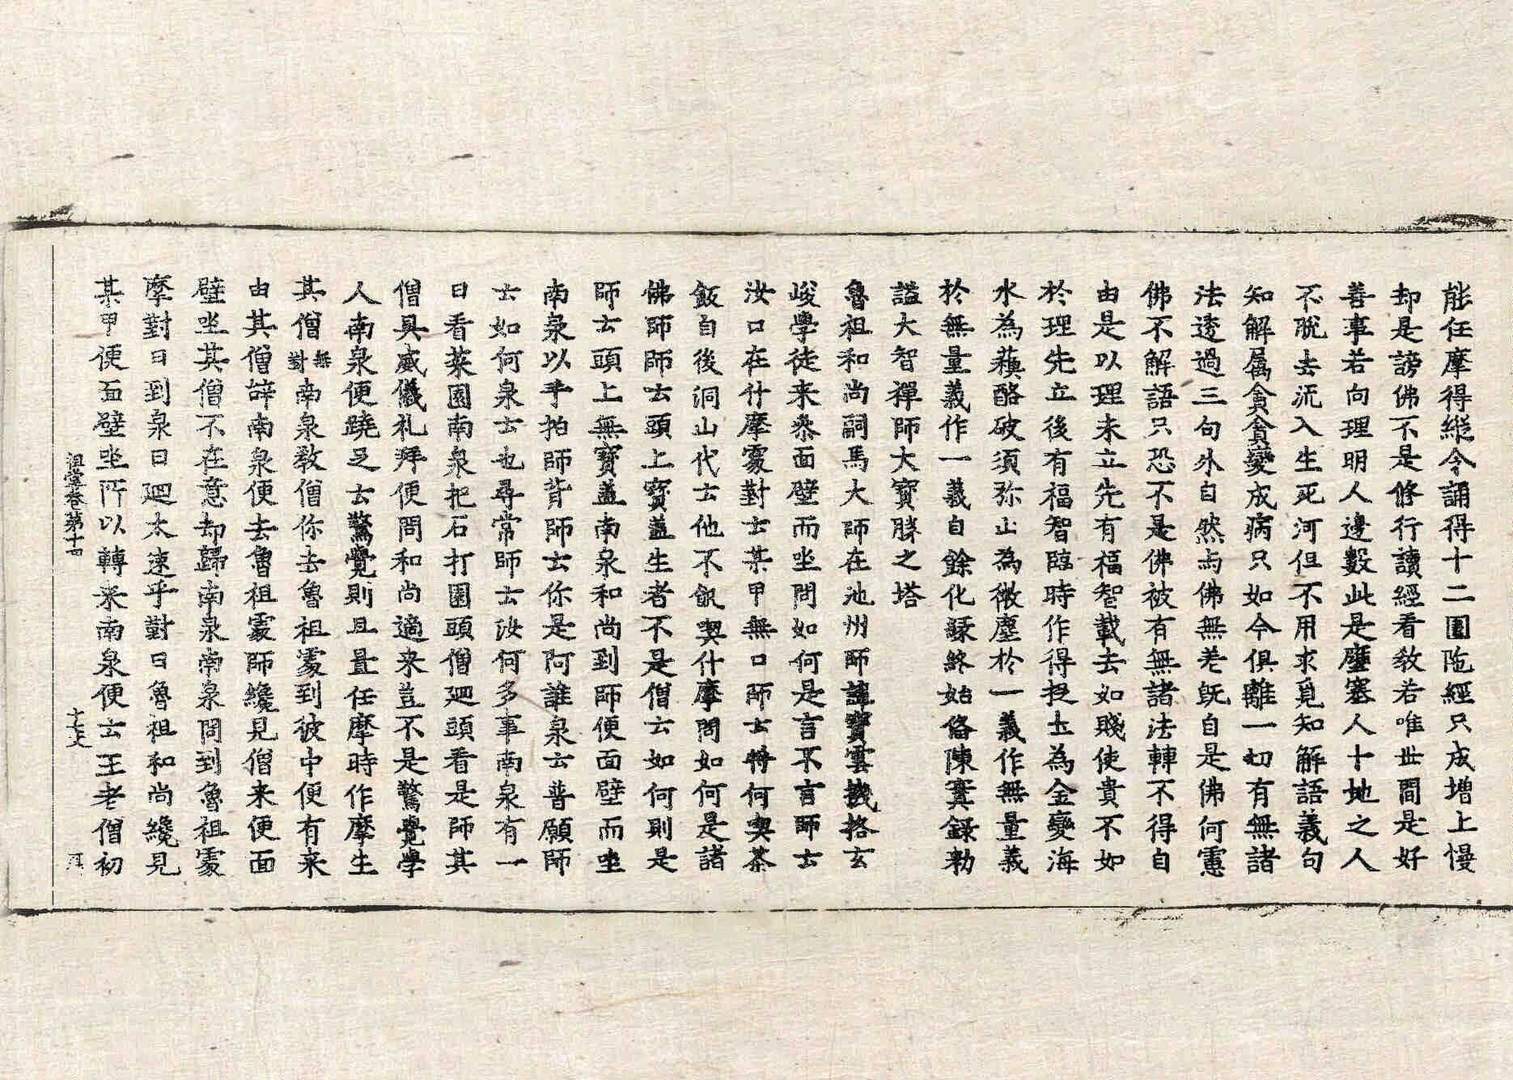 能任摩得縱令誦得十二圍陁經只成增上慢
却是謗佛不是修行讀經看教若唯世間是好
善事若向理明人邊數此是壅塞人十地之人
不脫去流入生死河但不用求覓知解語義句
知解属貪貪變成病只如今俱離一切有無諸
法透過三句外自然与佛無差旣自是佛何慮
佛不解語只恐不是佛被有無諸法轉不得自
由是以理未立先有福智載去如賤使貴不如
於理先立後有福智臨時作得捉土為金變海
水為蘇酪破須弥山為微塵於一義作無量義
於無量義作一義自餘化緣終始俻陳實錄勅
謚大智禪師大寶勝之塔
魯祖和尚嗣馬大師在池州師諱寶雲機格玄
峻學徒来叅面壁而坐問如何是言不言師云
汝口在什摩處對云某甲無口師云將何喫茶
飯自後洞山代云他不飢喫什摩問如何是諸
佛師師云頭上寶盖生者不是僧云如何則是
師云頭上無寶盖南泉和尚到師便面壁而坐
南泉以手拍師背師云你是阿誰泉云普願師
云如何泉云也尋常師云汝何多事南泉有一
日看菜園南泉把石打園頭僧廻頭看是師其
僧具威儀礼拜便問和尚適来豈不是驚覺學
人南泉便蹺足云驚覺則且置任摩時作摩生
其僧無對南泉教僧你去魯祖處到彼中便有来
由其僧辞南泉便去魯祖處師纔見僧来便面
壁坐其僧不在意却歸南泉南泉問到魯祖處
摩對曰到泉曰廻太速乎對曰魯祖和尚纔見
某甲便面壁坐所以轉来南泉便云王老僧初
祖堂卷第十四